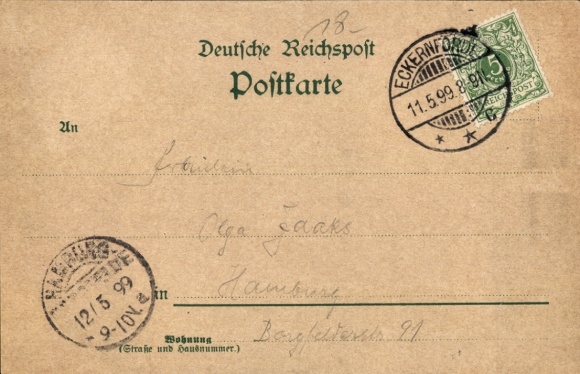 18-
Deutsche Reichspost
Postkarte
ECKERNFÖRDE
11.5.99. 8-9N.
* * c
5
REICHSPOST
An
Fräulein
Olga Jaaks
in Hamburg
HAMBURG
12/5 99
9-10V.
Wohnung
(Straße und Hausnummer.)
Borgfelderstr 91